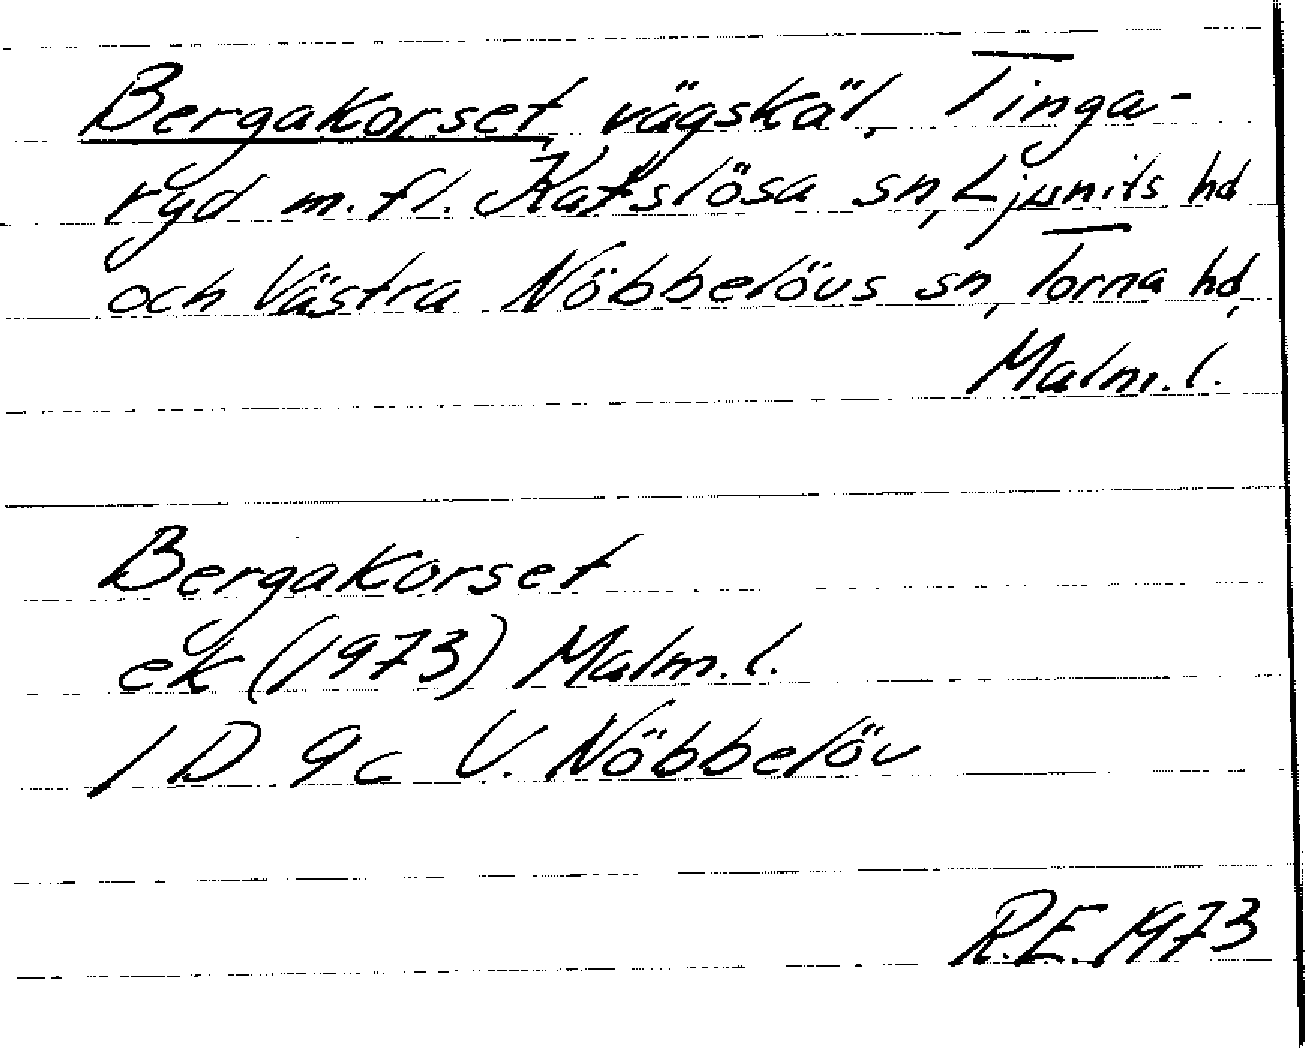 Bergakorset, vägskäl, Tinga-
ryd m.fl. Katslösa sn, Ljunits hd
och Västra Nöbbelövs sn, Torna hd,
Malm.l.
Bergakorset
ek (1973) Malm.l.
1D 9c V. Nöbbelöv
R.E. 1973